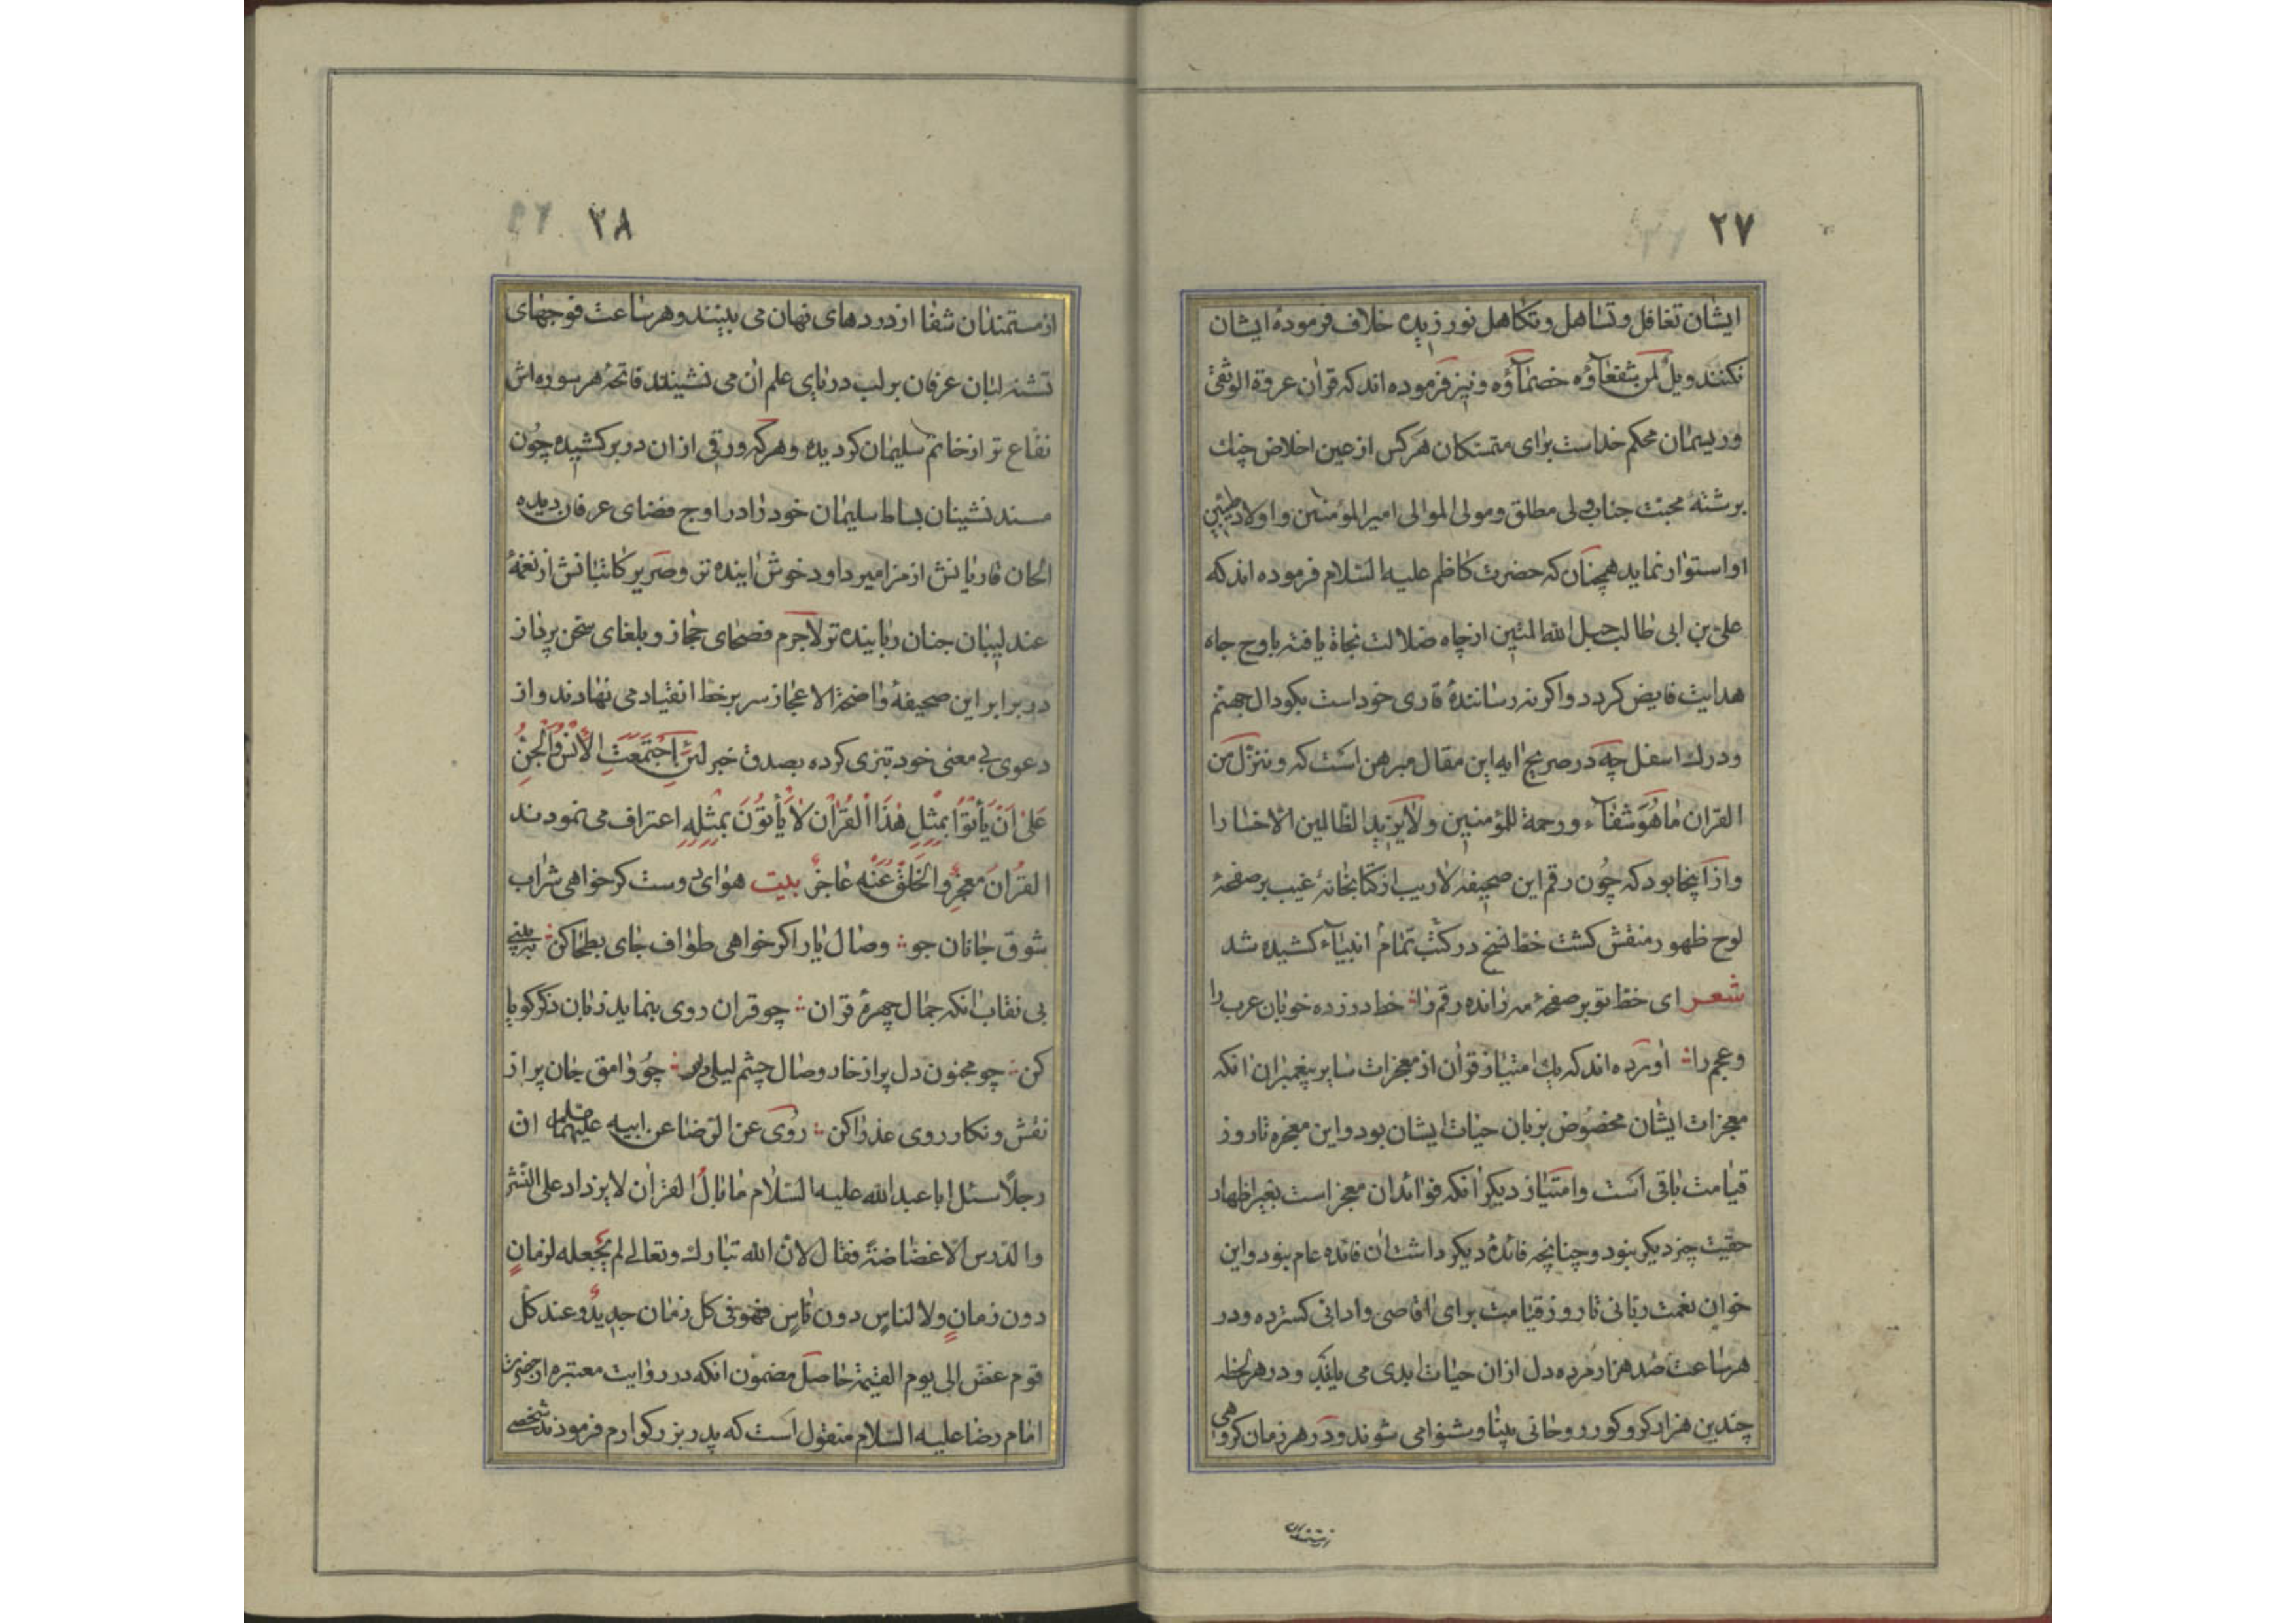 ۲۷
ایشان تغافل و تساهل و تکاهل نورزیده خلاف فرمودهٔ ایشان
نکنند ویلٌ لمن شفعآؤه خصمآؤه و نیز فرموده اند که قران عروة الوثقیٰ
و ریسمان محکم خداست برای متمسکان هرکس از عین اخلاص چنك
برشتهٔ محبت جناب ولی مطلق و مولی الموالی امیرالمؤمنین و اولاد طیبین
او استوار نماید همچنان که حضرت کاظم علیه السّلام فرموده اند که
علیّ بن ابی طالب حبل الله المتین از چاه ضلالت نجاة یافته باوج جاه
هدایت فایض کردد و اکر نه رسانندهٔ قاری خود است بکودال جهنم
و درك اسفل چه در صریح ایه این مقال مبرهن است که و ننزّل من
القران ما هُوَ شفآء و رحمة للمؤمنین و لا یزید الظّالمین الاّ خسارا
و از آنجا بود که چون رقم این صحیفهٔ لاریب از کتابخانهٔ غیب بر صفحهٔ
لوح ظهور منقش کشت خط نسخ در کتب تمام انبیآء کشیده شد
شعر ای خط تو بر صفحهٔ مه رانده رقم را ؞ خط در زده خوبان عرب را
و عجم را ؞ آورده اند که یك امتیاز قران از معجزات سایر پیغمبران انکه
معجزات ایشان مخصوص بزمان حیات ایشان بود و این معجزه تا روز
قیامت باقی است و امتیاز دیکر آنکه فوائد ان معجزات بغیر اظهار
حقیت چیز دیکر نبود و چنانچه فائدهٔ دیکر داشت ان فائده عام نبود و این
خوان نعمت ربّانی تا روز قیامت برای اقاصی و ادانی کسترده و در
هر ساعت صد هزار مرده دل از ان حیات ابدی می یابند و در هر لحظه
چندین هزار کر و کور روحانی بینا و شنوا می شوند و در هر زمان کروهی
از مستمندان
۲۸
از مستمندان شفا از دردهای نهان می بینند و هر ساعت فوجهای
تشنه لبان عرفان بر لب دریای علم ان می نشینند فاتحهٔ هر سوره اش
نفّاع تر از خاتم سلیمان کردیده و هرکه ورقی از ان در بر کشیده چون
مسند نشینان بساط سلیمان خود را در اوج فضای عرفان دیده
الحان قاریانش از مزامیر داود خوش اینده تر و صریر کاتبانش از نغمهٔ
عندلیبان جنان رباینده تر لاجرم فصحای حجاز و بلغای سخن پرداز
در برابر این صحیفهٔ واضحة الاعجاز سر بر خط انقیاد می نهادند و از
دعوی بی معنی خود تبرّی کرده بصدق خبر لَئِنِ اجْتَمَعَتِ الْأِنْسُ وَالْجِنُّ
عَلیٰ اَنْ یَأْتُوْا بِمِثْلِ هٰذَا الْقُرْاٰنِ لاٰ یَأْتُوْنَ بِمِثْلِهِ اعتراف می نمودند
القُرْانُ مُعجِزٌ وَالْخَلْقُ عَنْهُ عاجزٌ بیت هوای دوست کر خواهی شراب
شوق جانان جو ؞ وصال یار اکر خواهی طواف جای بطحا کن ؞
بی نقاب انکه جمال چهرهٔ قران ؞ چو قران روی بنماید زبان ذکر کویا
کن ؞ چو مجنون دل پر از خار وصال چشم لیلی ؞ چو وامق جان پر از
نقش و نکار روی عذرا کن ؞ روی عن الرّضا عن ابیه علیهما ان
رجلاً سئل ابا عبدالله علیه السّلام ما بال القران لا یزداد علی النّشر
والدّرس الاّ غضاضةً فقال لانّ الله تبارك و تعالی لم یجعله لزمانٍ
دون زمانٍ و لا لناسٍ دون ناسٍ فهو فی کل زمان جدیدٌ و عند کل
قوم غضّ الی یوم القیٰمة حاصل مضمون انکه در روایت معتبره از حضرت
امام رضا علیه السّلام منقول است که پدر بزرکوارم فرمودند شخصے